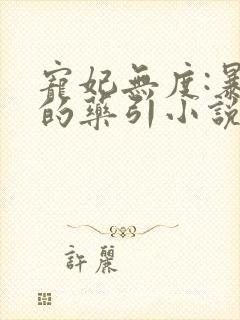 寵妃無度:暴
的藥引小說
許麗